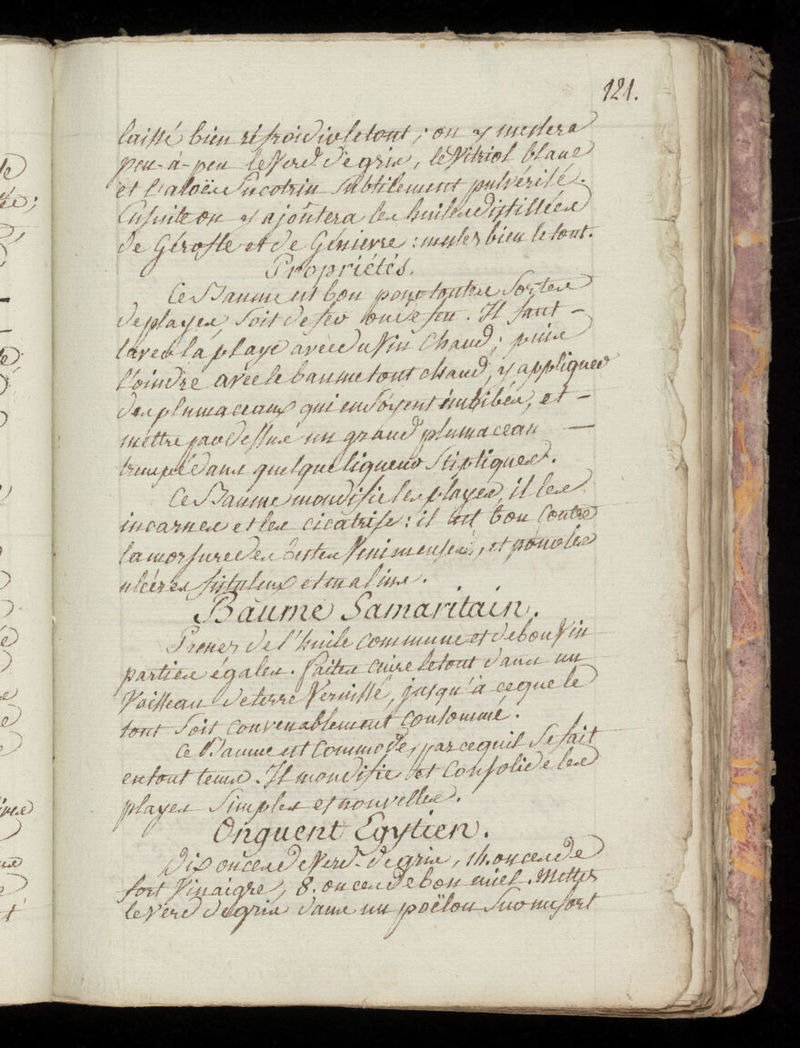 121.
laissé bien réfroidir le tout ; on y meslera
peu-à-peu le Verd de gris, le Vitriol blanc
et l'aloës Sucotrin Subtilement pulvérisé.
Ensuite on y ajoûtera les huiles distillées
de Gérofle et de Génievre : meslez bien le tout.
Propriétés.
Ce Baume est bon pour toutes Sortes
de playes, Soit de fer ou de feu. Il faut –
laver la playe avec du Vin Chaud ; puis
l'oindre avec le baume tout chaud, y appliquer
des plumaceaux qui en Soyent imbibés, et –
mettre par dessus un grand plumaceau —
trempé dans quelque liqueur Stiptique.
Ce Baume mondifie les playes, il les
incarne et les cicatrise : il est bon Contre
la morsure des bestes Venimeuses, et pour les
ulcères fistuleux et malins.
Baume Samaritain.
Prenez de l'huile commune et de bon Vin
parties égales. faites cuire le tout dans un
Vaisseau de terre Vernissé, jusqu'à ce que le
tout Soit convenablement consommé.
Ce Baume est Commode, parcequil Se fait
en tout tems. Il mondifie et Consolide les
playes Simples et nouvelles.
Onguent Egytien.
Dix onces de Verd-de gris, 14. onces de
fort Vinaigre, 8. onces de bon miel. Mettez
le Verd de gris dans un poëlon Sur un fort